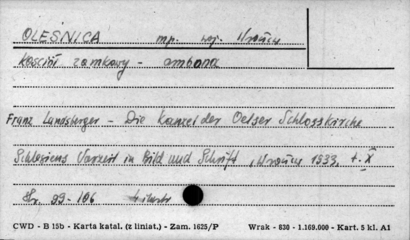 OLEŚNICA mp. woj. Wrocław
Kościół zamkowy - ambona
Franz Landsberger - Die Kanzel der Oelser Schlosskirche
Schlesiens Vorzeit in Bild und Schrift, Wrocław 1933, t. X
Str. 99-106
CWD - B 15b - Karta katal. (z liniat.) - Zam. 1625/P Wrak - 630 - 1.169.000 - Kart. 5 kl. A1